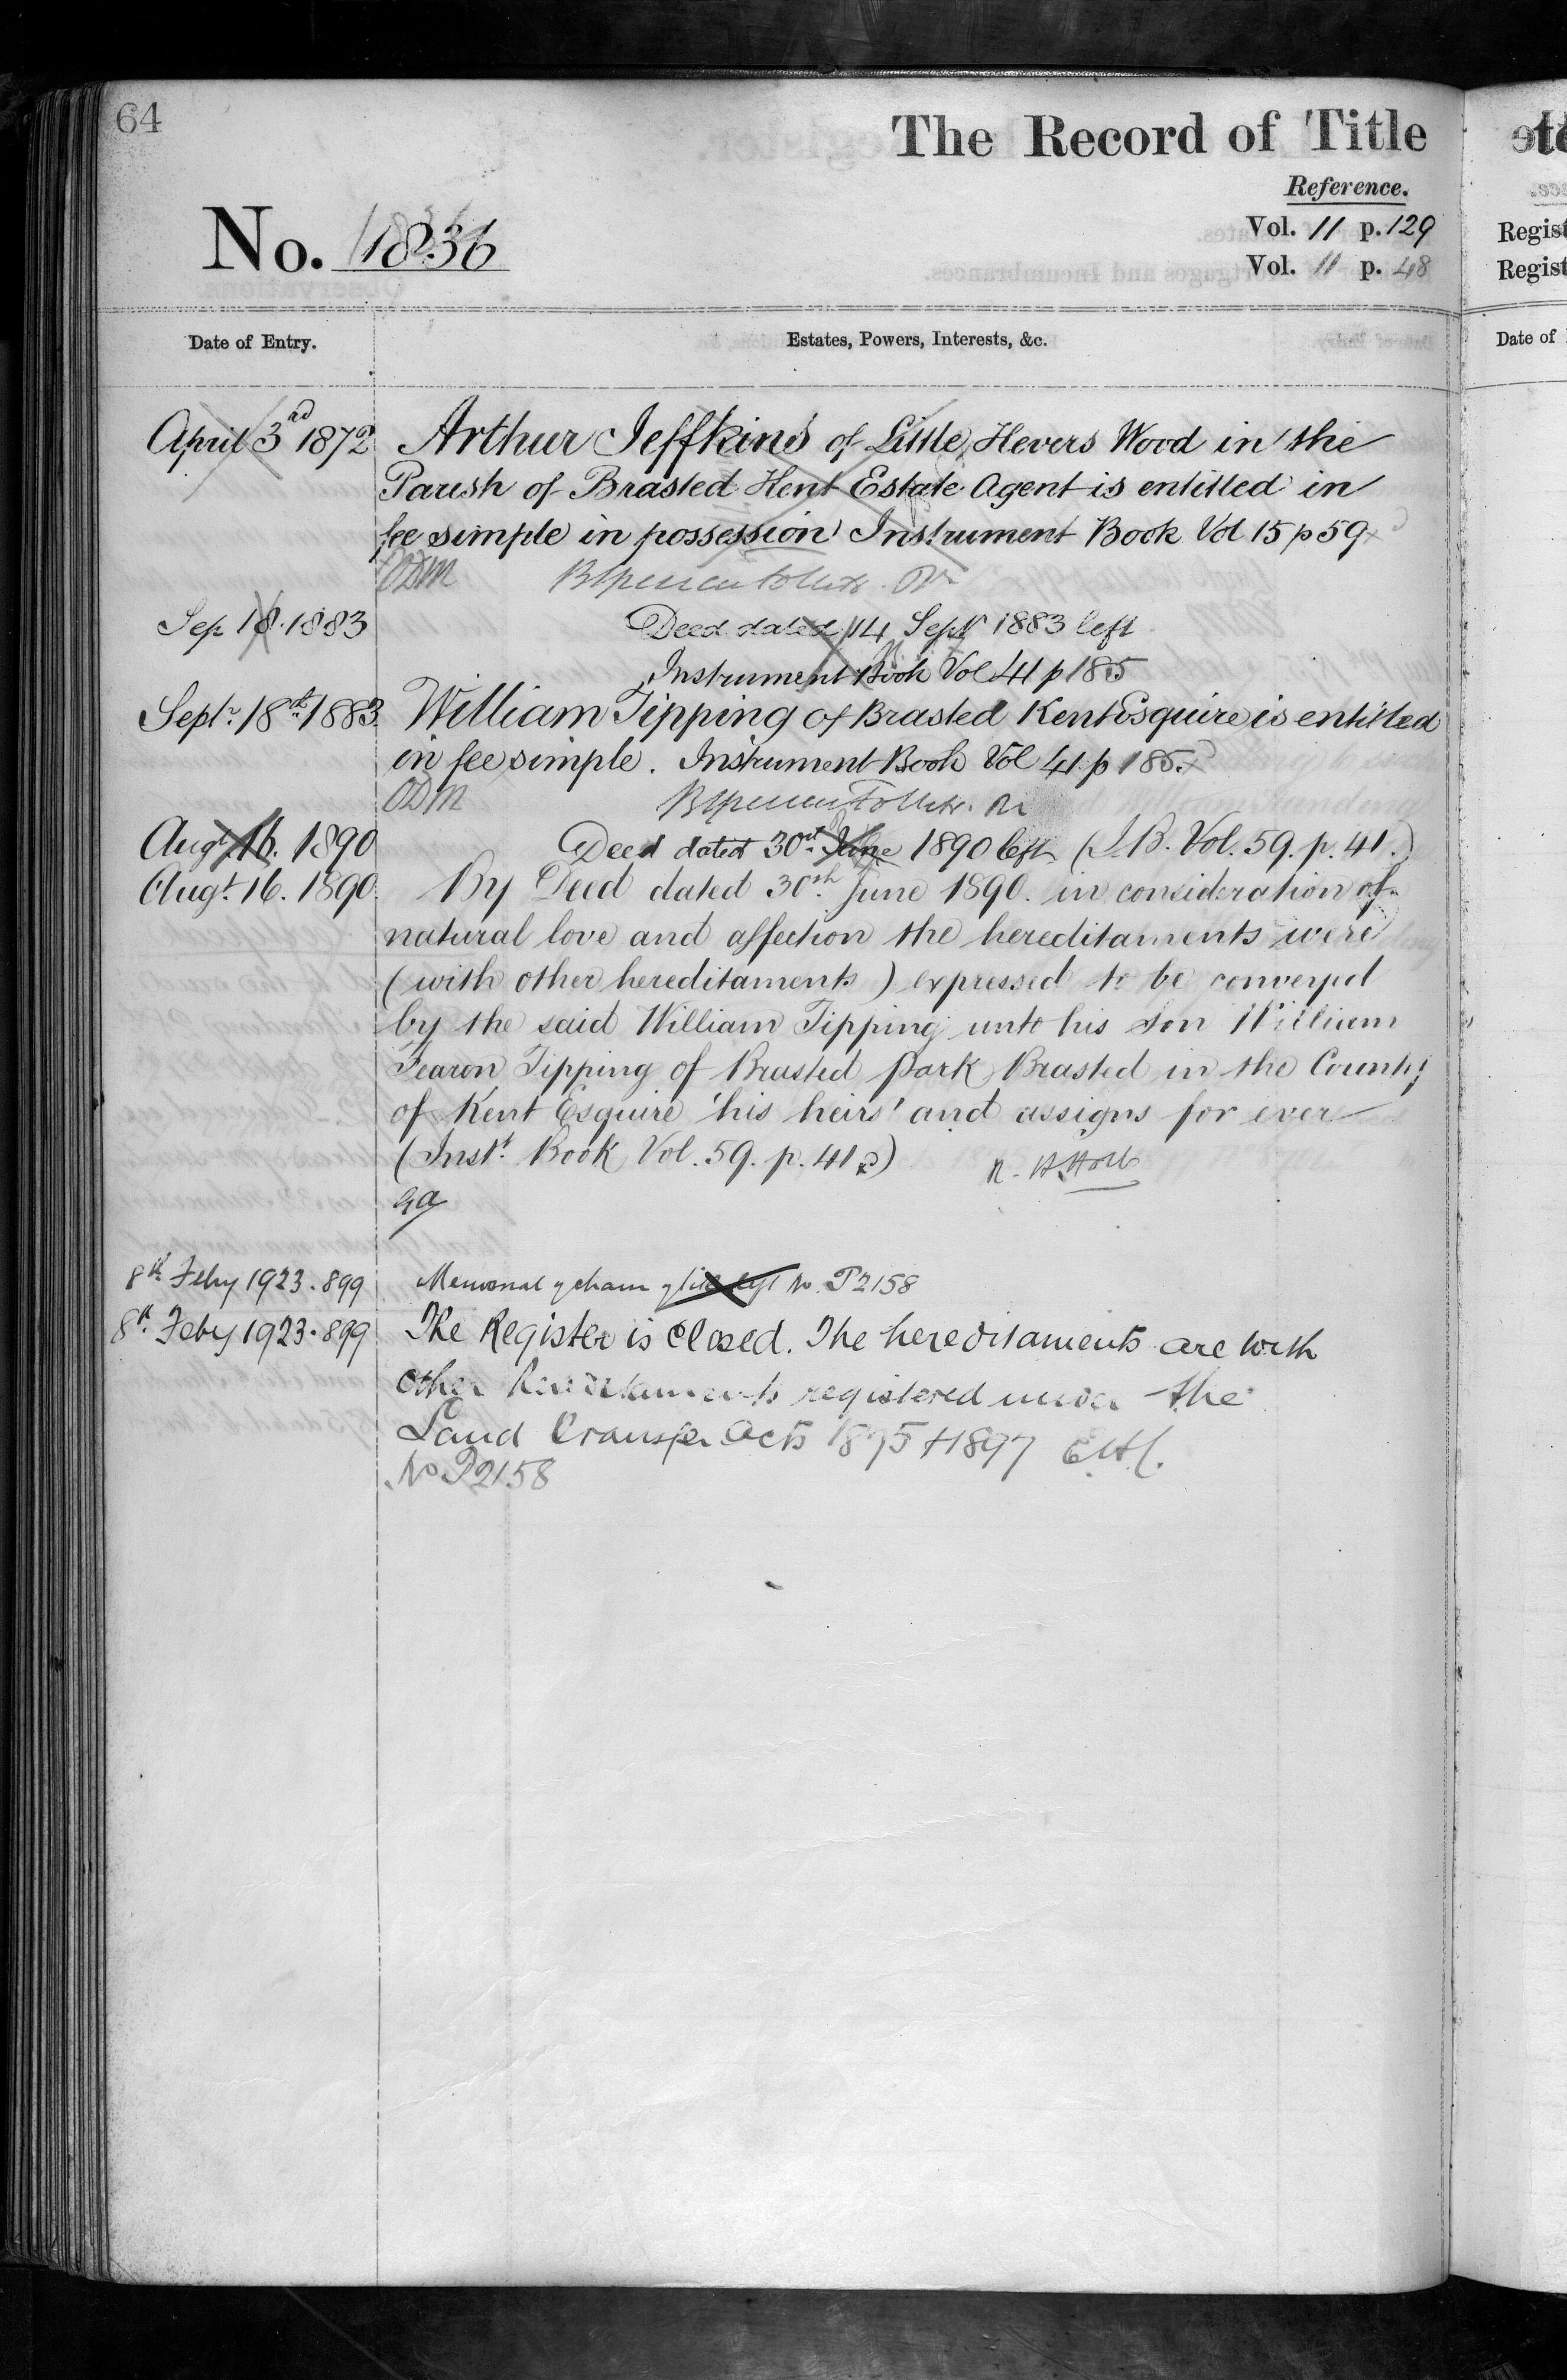 64
The Record of Title
Reference.
No. 1836
Vol. 11 p. 129
Vol. 11 p. 48
Date of Entry.
Estates, Powers, Interests, &c.
April 3rd 1872 Arthur Jeffkins of Little Hevers Wood in the
Parish of Brasted Kent Estate Agent is entitled in
fee simple in possession Instrument Book Vol 15 p 59
ODM
Sep 18. 1883 Deed dated 14 Septr 1883 left
Instrument Book Vol 41 p 185
Septr 18th 1883. William Tipping of Brasted Kent Esquire is entitled
in fee simple. Instrument Book Vol 41 p 185.
ODM
Augt 16. 1890 Deed dated 30th June 1890 left (I.B. Vol. 59. p. 41.)
Augt. 16. 1890. By Deed dated 30th June 1890. in consideration of
natural love and affection the hereditaments were
(with other hereditaments) expressed to be conveyed
by the said William Tipping unto his son William
Fearon Tipping of Brasted Park Brasted in the County
of Kent Esquire 'his heirs' and assigns for ever
(Instt. Book Vol. 59. p. 41.)
8th Feby 1923. 899 Memorial of No. P2158
8th Feby 1923. 899 The Register is closed. The hereditaments are with
other hereditaments registered under the
Land Transfer Acts 1875 & 1897
No P2158
Regist
Regist
Date of